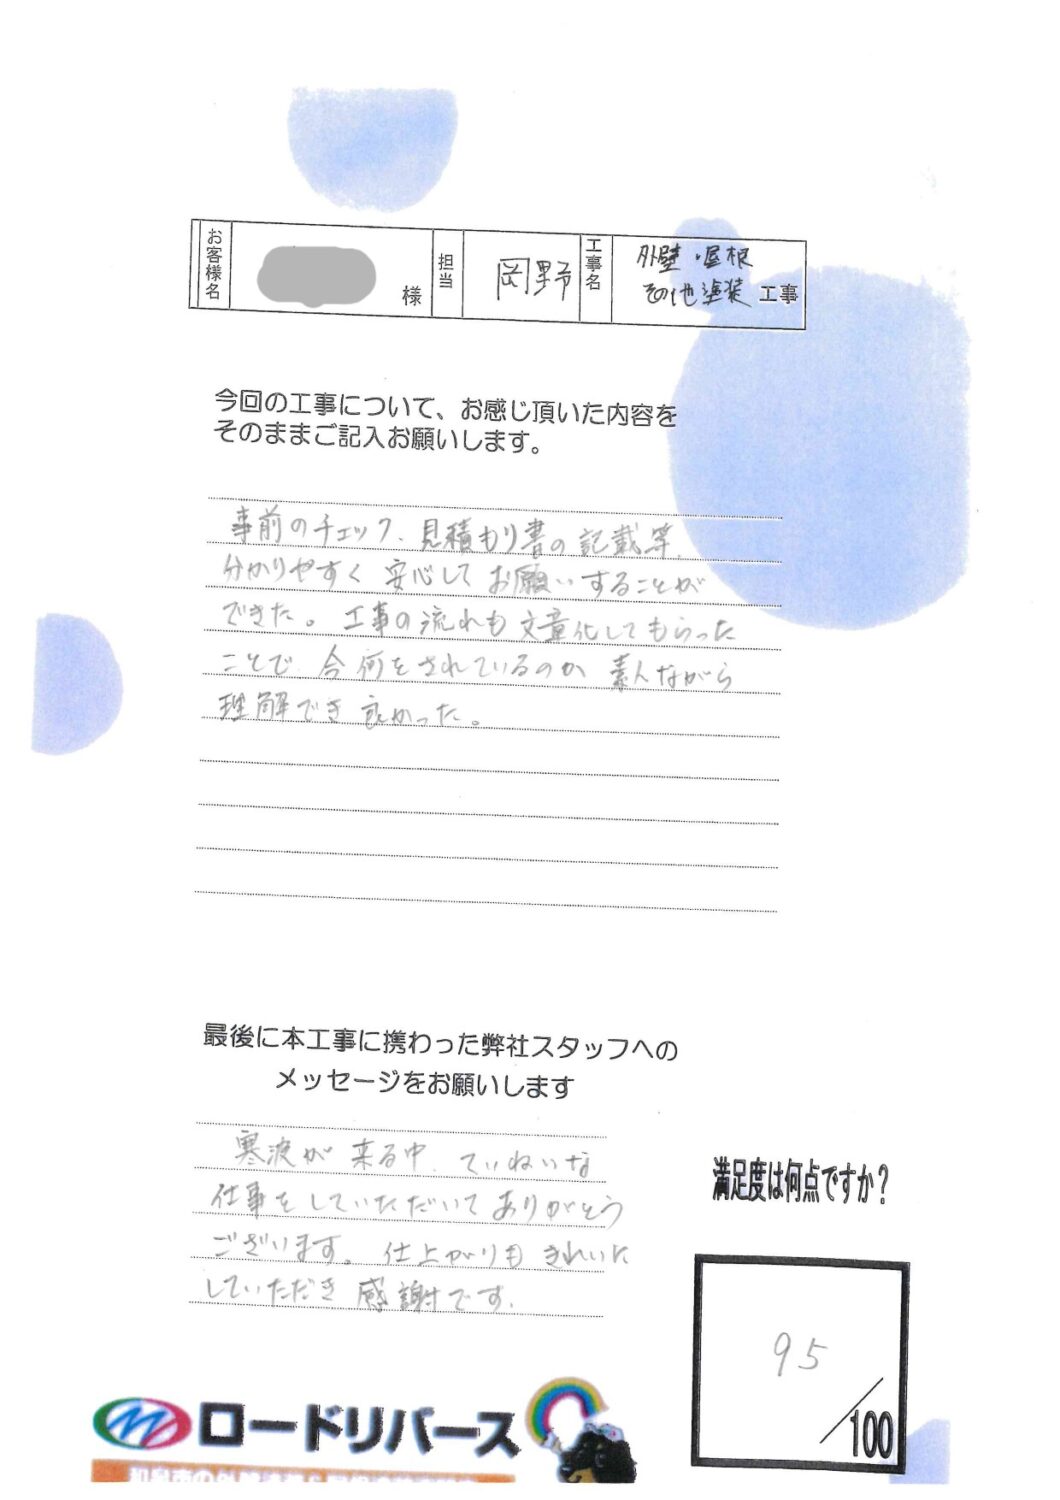 お客様名
様
担当
岡野
工事名
外壁・屋根
その他塗装 工事
今回の工事について、お感じ頂いた内容を
そのままご記入お願いします。
事前のチェック、見積もり書の記載等、
分かりやすく 安心して お願いすることが
できた。工事の流れも文章化してもらった
ことで、今何をされているのか 素人ながら
理解でき 良かった。
最後に本工事に携わった弊社スタッフへの
メッセージをお願いします
寒波が 来る中、ていねいな
仕事をしていただいて ありがとう
ございます。仕上がりも きれいに
していただき 感謝です。
満足度は何点ですか?
95
/100
ロードリバース